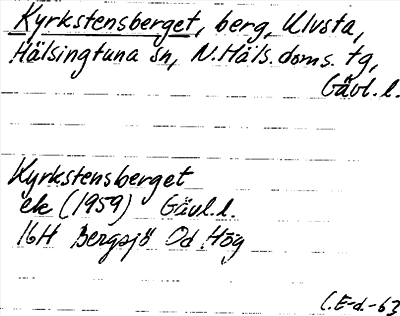 Kyrkstensberget, berg, Ulvsta,
Hälsingtuna sn, N. Häls. doms. tg,
Gävl. l.
Kyrkstensberget
ek (1959) Gävl. l.
16H Bergsjö Od Hög
C.E-d.-63